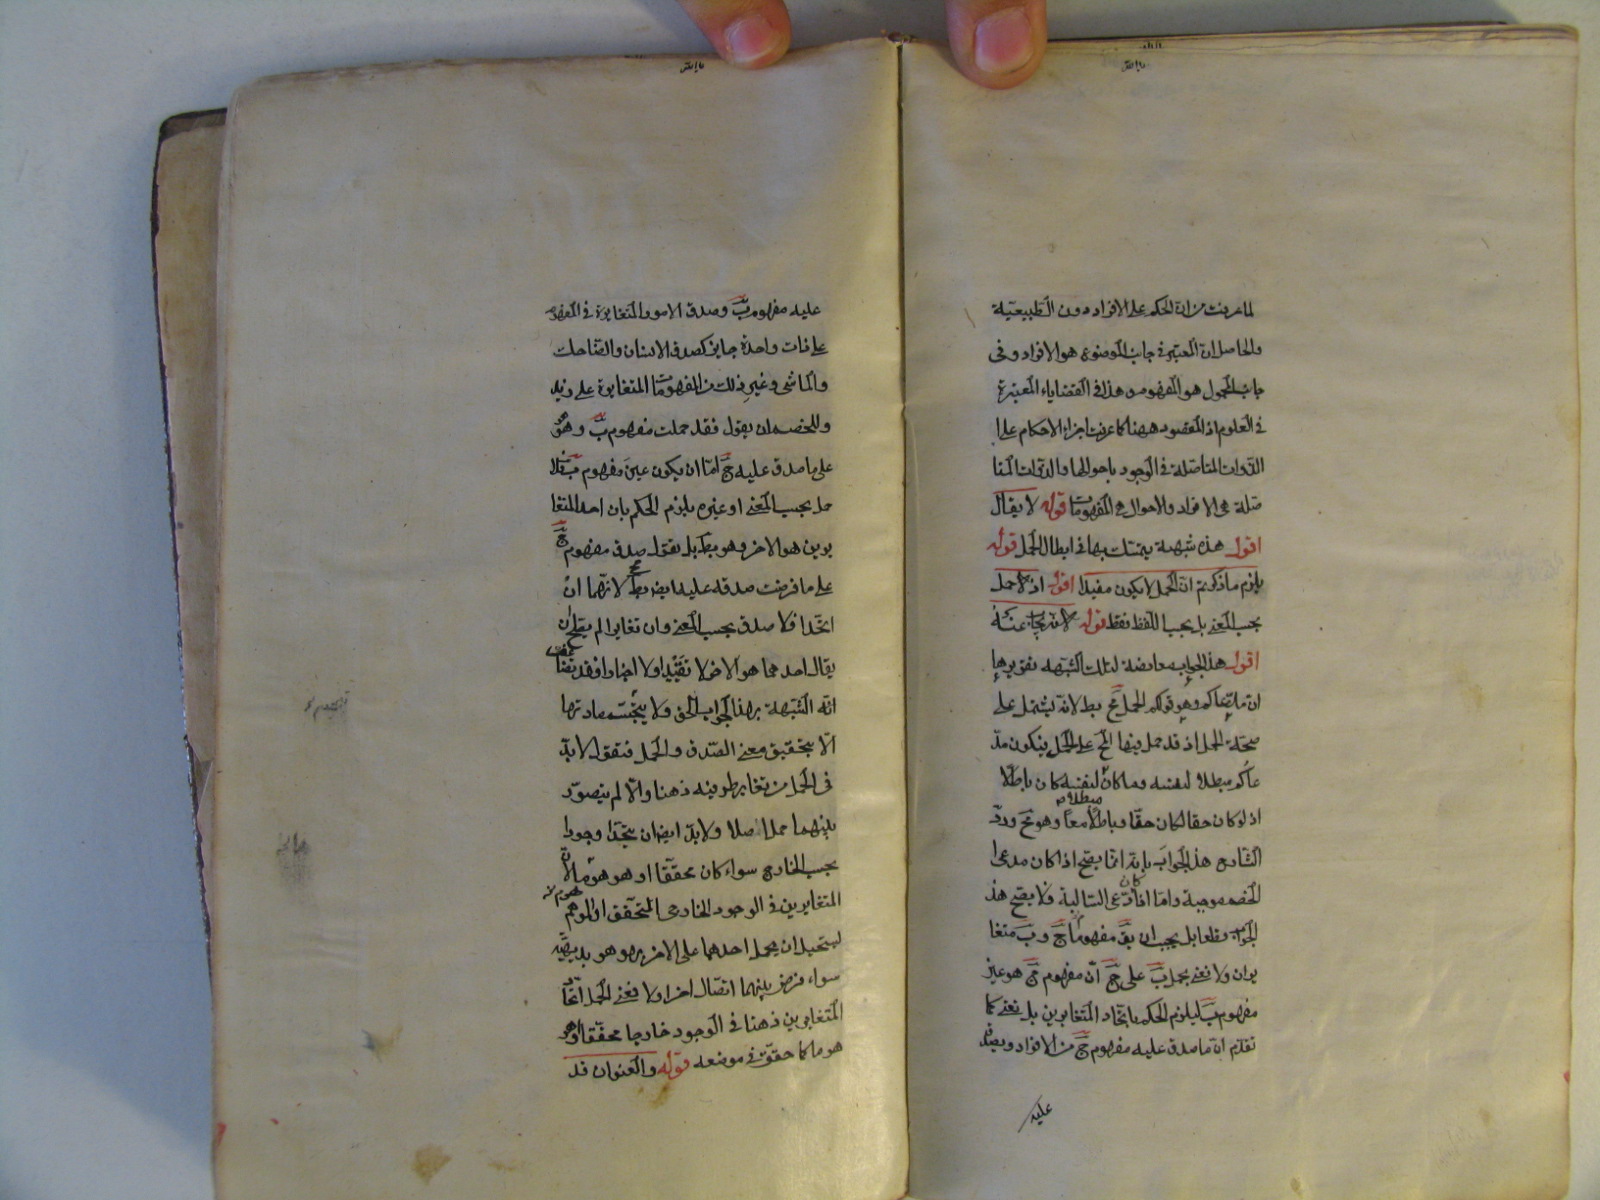 لما عرفت من ان الحكم على الافراد دون الطبيعية
والحاصل ان المعتبر فى جانب الموضوع هو الافراد وفى
جانب المحمول هو المفهوم هذا فى القضاياء المعتبرة
فى العلوم اذ المقصود ههنا كما عرفت اجراء الاحكام على
الذوات المتاصلة فى الوجود باحوالها والذوات المتا
صلة هى الافراد والاحوال هى المفهومات قوله لا يقال
اقول هذه شبهة يتمسك بها فى ابطال الحمل قوله
يلزم ما ذكرتم ان الحمل لا يكون مفيدا اقول اذ لا حمل
بحسب المعنى بل بحسب اللفظ فقط قوله لانه يجاب عنه
اقول هذا الجواب معارضة لتلك الشبهة تقريرها
ان مدعاكم وهو قولكم الحمل مح بط لانه يشتمل على
صحة الحمل اذ قد حمل فيها المح على الحمل فيكون مد
عاكم مبطلا لنفسه وما كان لنفسه كان باطلا
مبطلا
اذ لو كان حقا لكان حقا وباطلا معا وهو مح ورد
الشارح هذا الجواب بانه انما يصح اذا كان مدعى
الخصم موجبة واما اذا كان دعى السالبة فلا يصح هذا
الجواب قطعا بل يجب ان يق مفهوما ج و ب متغا
يران ولا نعنى بحمل ب على ج ان مفهوم ج هو عين
مفهوم ب ليلزم الحكم باتحاد المتغايرين بل نعنى كما
تقدم ان ما صدق عليه مفهوم ج من الافراد ويصدق
عليه
عليه مفهوم ب وصدق الامور المتغايرة فى المفهوم
على ذات واحدة جايز كصدق الانسان والضاحك
والماشى وغير ذلك من المفهومات المتغايرة على زيد
وللخصم ان يقول فقد حملت مفهوم ب وهو هو
على ما صدق عليه ج اما ان يكون عين مفهوم ب فلا
حمل بحسب المعنى او غيره يلزم الحكم بان احد المتغا
يرين هو الاخر وهو بط بل نقول صدق مفهوم ج
على ما فرضت صدقه عليه ايض بط لانهما ان
اتحدا فلا صدق بحسب المعنى وان تغايرا لم يصح ان
يقال احدهما هو الاخر لا تقييدا ولا اخبارا فقد
انه الشبهة بهذا الجواب الحق ولا ينحسم مادتها
الا بتحقيق معنى الصدق والحمل فنقول لا بد
فى الحمل من تغاير طرفيه ذهنا والا لم يتصور
بينهما حمل اصلا ولا بد ايضا ان يتحدا وجودا
بحسب الخارج سواء كان محققا او موهوما لان
المتغايرين فى الوجود الخارجى المتحقق او الموهوم
يستحيل ان يحمل احدهما على الاخر بهو هو بديهة
سواء فرض بينهما اتصال اخر او لا فمعنى الحمل اتحاد
المتغايرين ذهنا فى الوجود خارجا محققا او
موهوما كما حقق فى موضعه قوله والعنوان قد